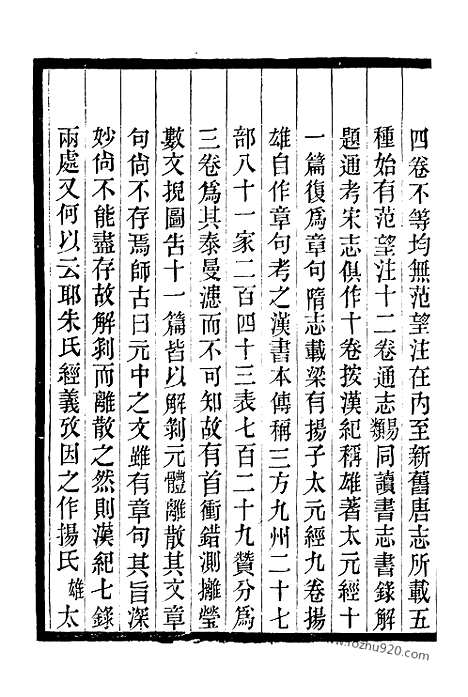 四卷不等均無范望注在內至新舊唐志所載五
種始有范望注十二卷通志易類同讀書志書錄解
題通考宋志俱作十卷按漢紀稱雄著太元經十
一篇復爲章句隋志載梁有揚子太元經九卷揚
雄自作章句考之漢書本傳稱三方九州二十七
部八十一家二百四十三表七百二十九贊分爲
三卷爲其泰曼漶而不可知故有首衝錯測攡瑩
數文掜圖告十一篇皆以解剝元體離散其文章
句尙不存焉師古曰元中之文雖有章句其旨深
妙尙不能盡存故解剝而離散之然則漢紀七錄
兩處又何以云耶朱氏經義攷因之作揚氏雄太
www.rozhu920.com